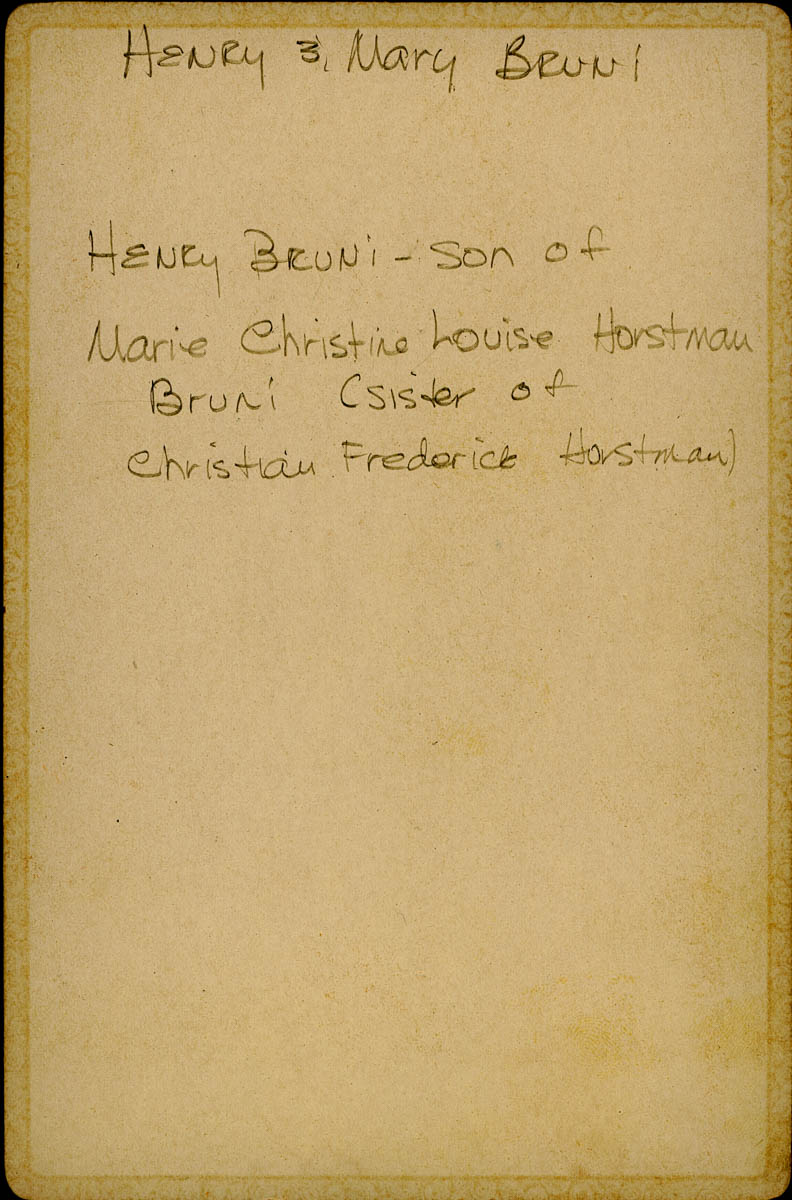 Henry & Mary Bruni
Henry Bruni - son of
Marie Christine Louise Horstman
Bruni (sister of
Christian Frederick Horstman)